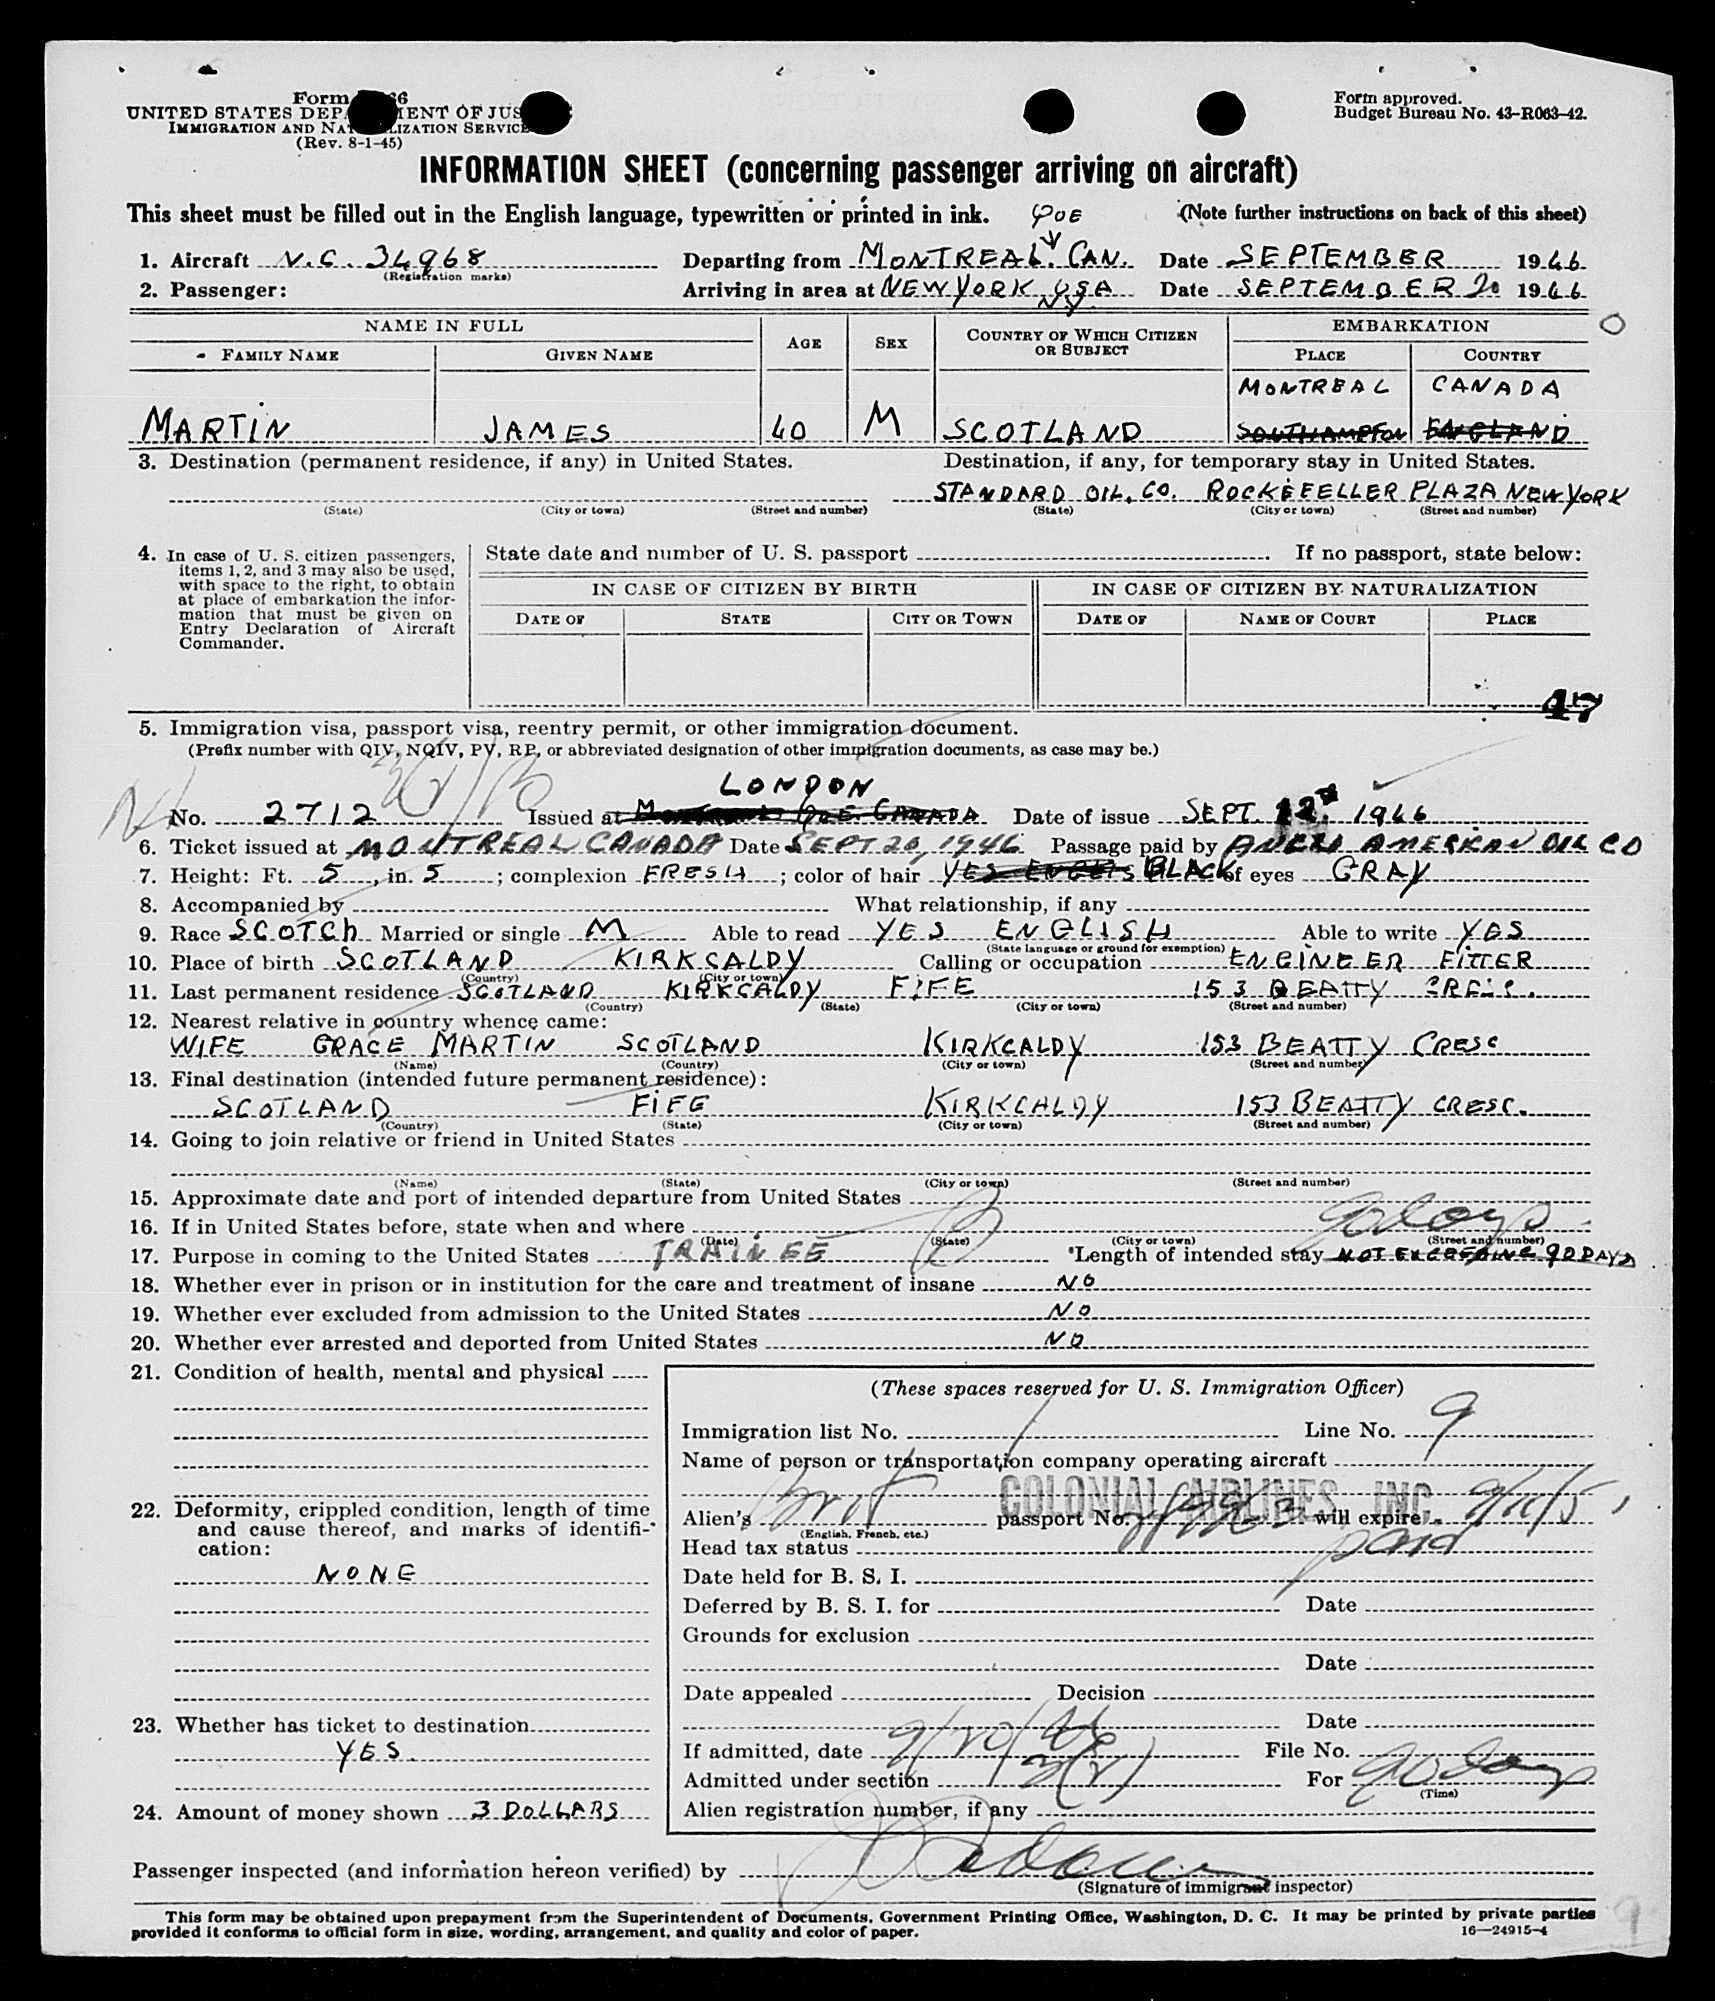 Form 66
UNITED STATES DEP ENT OF JUS
IMMIGRATION AND NAT LIZATION SERVICE
(Rev. 8-1-45)
Form approved.
Budget Bureau No. 43-R063-42.
INFORMATION SHEET (concerning passenger arriving on aircraft)
This sheet must be filled out in the English language, typewritten or printed in ink. QUE (Note further instructions on back of this sheet)
1. Aircraft N.C. 34968 Departing from MONTREAL. CAN. Date SEPTEMBER 1946
(Registration marks)
2. Passenger: Arriving in area at NEW YORK USA Date SEPTEMBER 20 1946
NY
NAME IN FULL AGE SEX COUNTRY OF WHICH CITIZEN OR SUBJECT EMBARKATION O
FAMILY NAME GIVEN NAME PLACE COUNTRY
MONTREAL CANADA
MARTIN JAMES 40 M SCOTLAND SOUTHAMPTON ENGLAND
3. Destination (permanent residence, if any) in United States. Destination, if any, for temporary stay in United States.
STANDARD OIL. CO. ROCKEFELLER PLAZA NEW YORK
(State) (City or town) (Street and number) (State) (City or town) (Street and number)
4. In case of U. S. citizen passengers, items 1, 2, and 3 may also be used, with space to the right, to obtain at place of embarkation the information that must be given on Entry Declaration of Aircraft Commander.
State date and number of U. S. passport . If no passport, state below:
IN CASE OF CITIZEN BY BIRTH IN CASE OF CITIZEN BY NATURALIZATION
DATE OF STATE CITY OR TOWN DATE OF NAME OF COURT PLACE
47
5. Immigration visa, passport visa, reentry permit, or other immigration document.
(Prefix number with QIV, NQIV, PV, RP, or abbreviated designation of other immigration documents, as case may be.)
LONDON
No. 2712 Issued at QUE. CANADA Date of issue SEPT. 12th 1946
6. Ticket issued at MONTREAL CANADA Date SEPT 20, 1946 Passage paid by ANGLO AMERICAN OIL CO
7. Height: Ft. 5, in. 5; complexion FRESH; color of hair BLACK of eyes GRAY
8. Accompanied by What relationship, if any
9. Race SCOTCH Married or single M Able to read YES ENGLISH Able to write YES
(State language or ground for exemption)
10. Place of birth SCOTLAND KIRKCALDY Calling or occupation ENGINEER FITTER
(Country) (City or town)
11. Last permanent residence SCOTLAND KIRKCALDY FIFE 153 BEATTY CRESC.
(Country) (State) (City or town) (Street and number)
12. Nearest relative in country whence came:
WIFE GRACE MARTIN SCOTLAND KIRKCALDY 153 BEATTY CRESC
(Name) (Country) (City or town) (Street and number)
13. Final destination (intended future permanent residence):
SCOTLAND FIFE KIRKCALDY 153 BEATTY CRESC.
(Country) (State) (City or town) (Street and number)
14. Going to join relative or friend in United States
(Name) (State) (City or town) (Street and number)
15. Approximate date and port of intended departure from United States
16. If in United States before, state when and where 90 days
(Date) (State) (City or town) (Street and number)
17. Purpose in coming to the United States TRAINEE Length of intended stay NOT EXCEEDING 90 DAYS
18. Whether ever in prison or in institution for the care and treatment of insane NO
19. Whether ever excluded from admission to the United States NO
20. Whether ever arrested and deported from United States NO
21. Condition of health, mental and physical
22. Deformity, crippled condition, length of time and cause thereof, and marks of identification:
NONE
23. Whether has ticket to destination
YES.
24. Amount of money shown 3 DOLLARS
(These spaces reserved for U. S. Immigration Officer)
Immigration list No. 1 Line No. 9
Name of person or transportation company operating aircraft
COLONIAL AIRLINES, INC.
Alien's Brit passport No. will expire 9/11/51
(English, French, etc.)
Head tax status pend
Date held for B. S. I.
Deferred by B. S. I. for Date
Grounds for exclusion
Date
Date appealed Decision
Date
If admitted, date 9/20/46 File No.
Admitted under section 3(2) For 90 days
(Time)
Alien registration number, if any
Passenger inspected (and information hereon verified) by
(Signature of immigrant inspector)
This form may be obtained upon prepayment from the Superintendent of Documents, Government Printing Office, Washington, D. C. It may be printed by private parties
provided it conforms to official form in size, wording, arrangement, and quality and color of paper. 16—24915-4
9